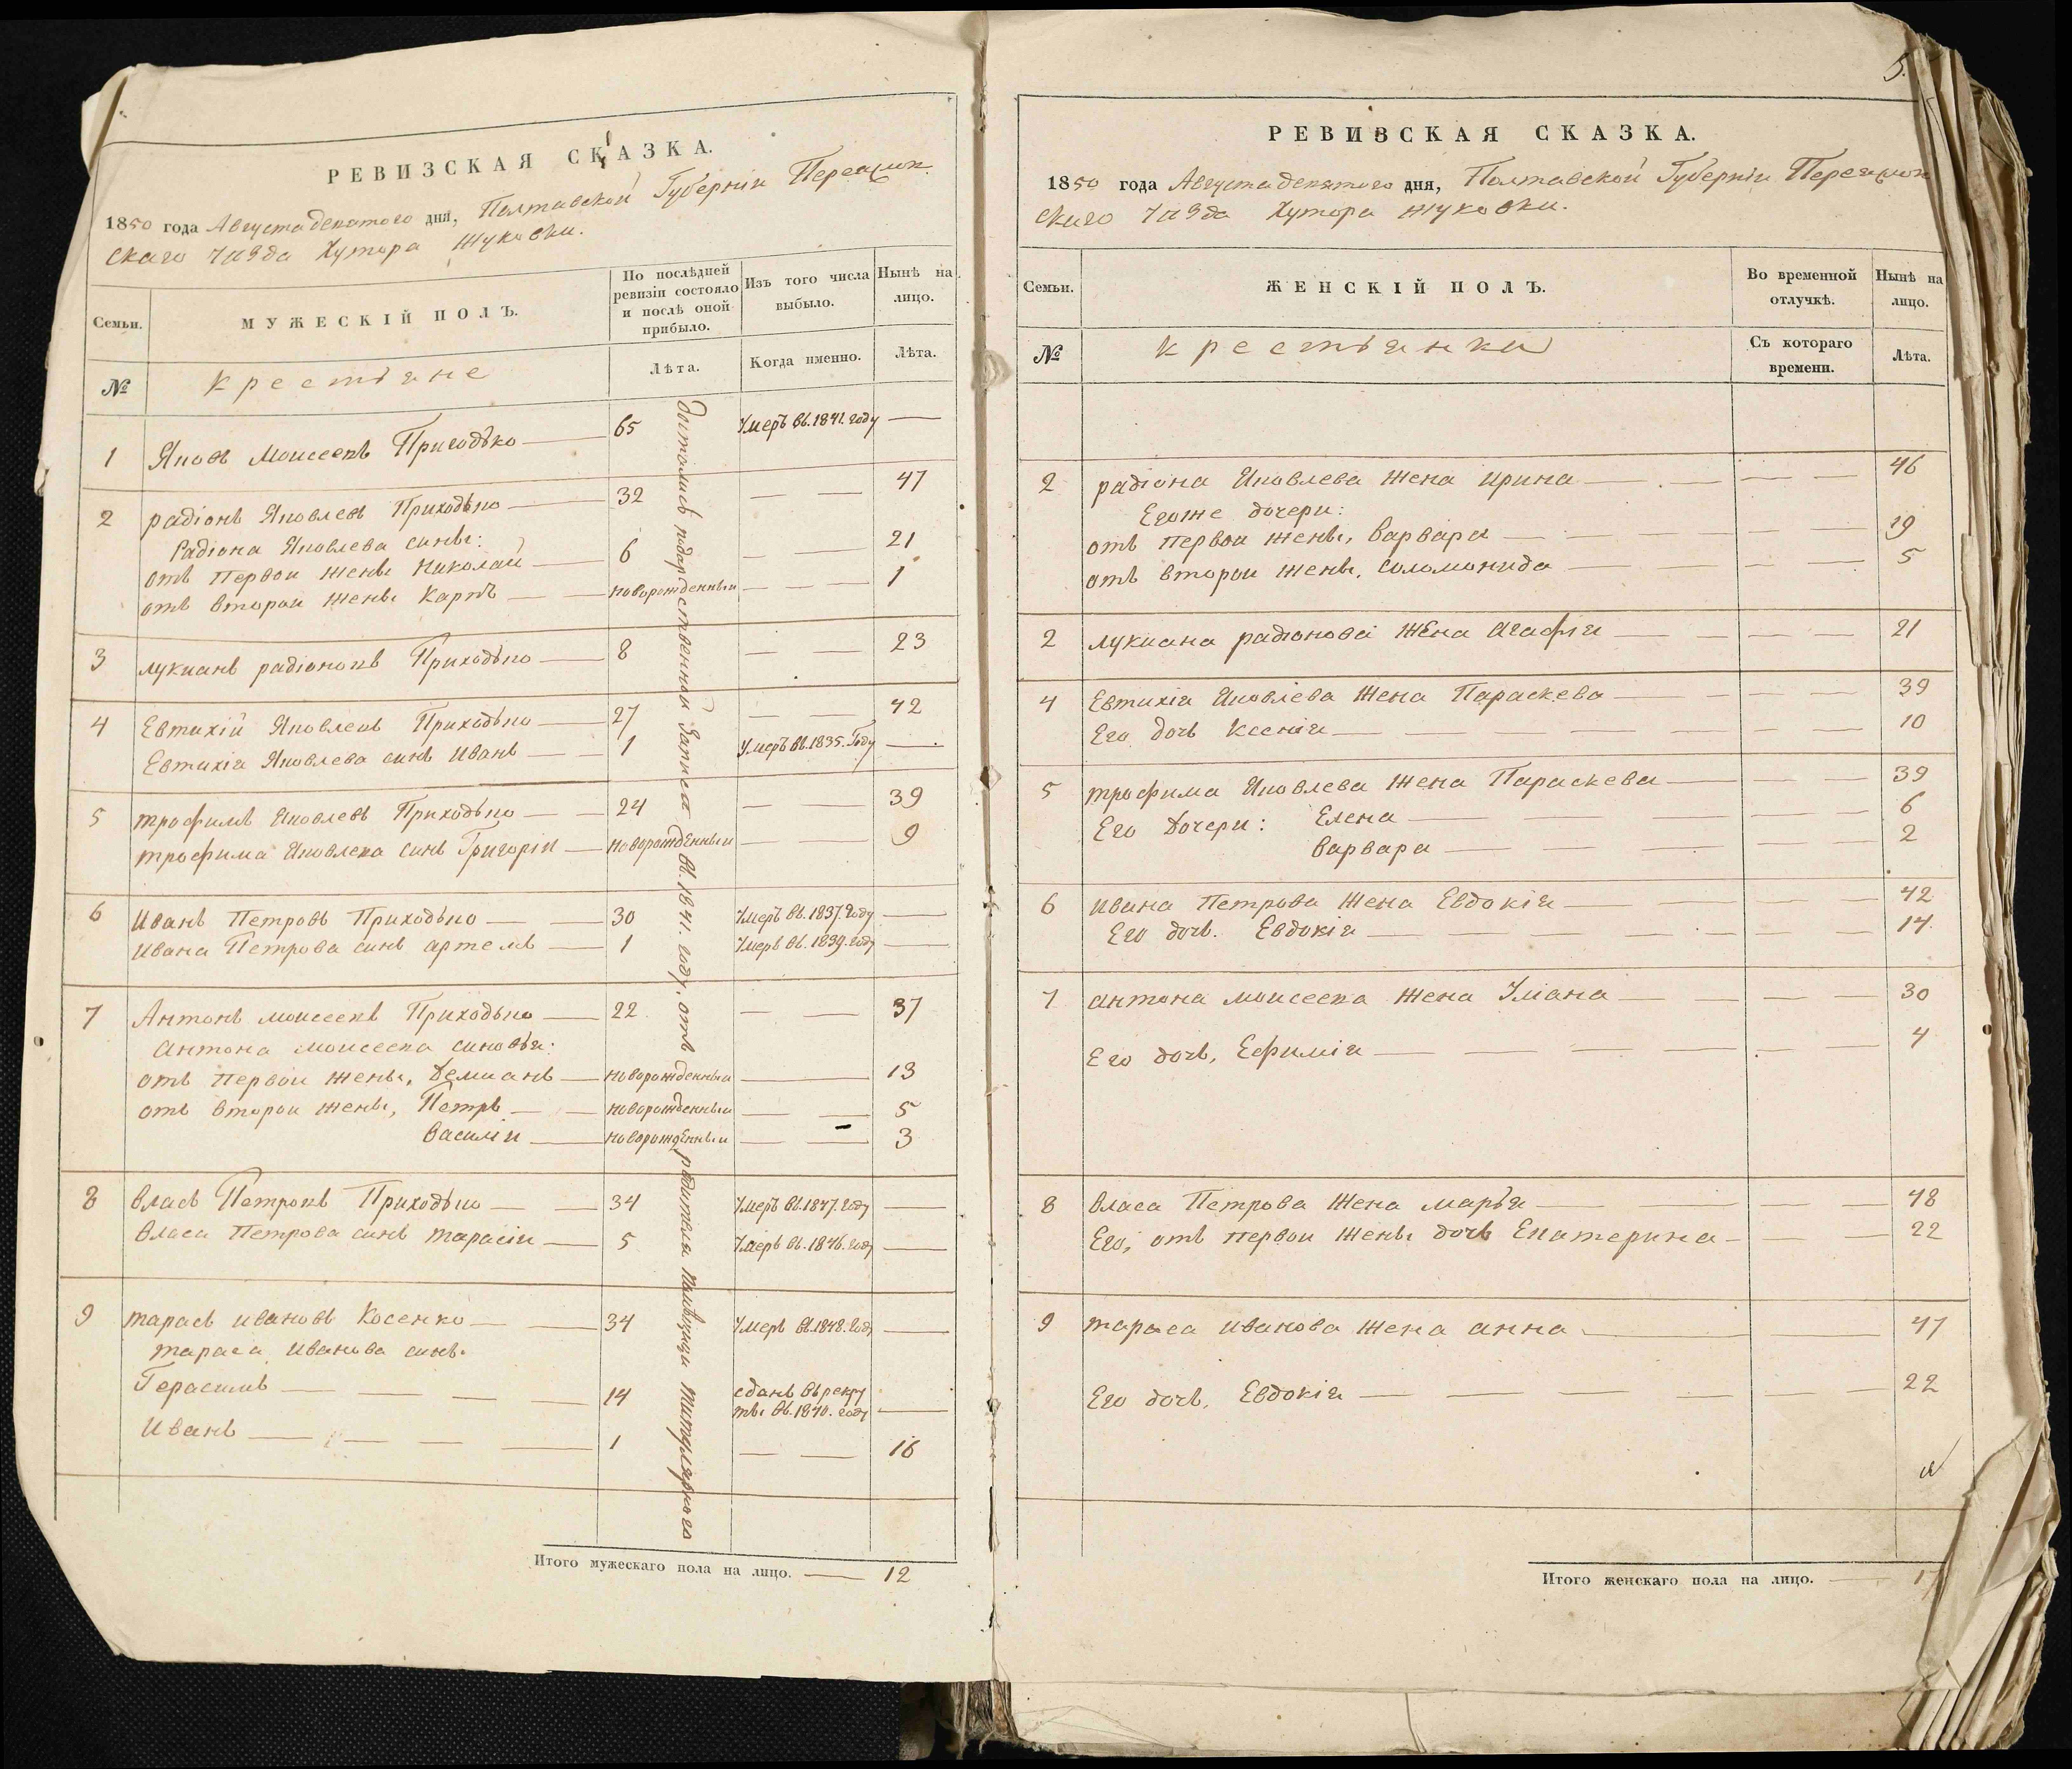 РЕВИЗСКАЯ СКАЗКА.
1850 года Августа девятого дня, Полтавской Губерніи Переяслов
скаго уизда Хутора Жуковки.
Семьи.
МУЖЕСКІЙ ПОЛЪ.
По послѣдней ревизіи состояло и послѣ оной прибыло.
Изъ того числа выбыло.
Нынѣ на лицо.
№
крестьяне
Лѣта.
Когда именно.
Лѣта.
1 Яковъ Моисеевъ Пригодько 65 Умеръ въ. 1841. году —
2 радіонъ Яковлевъ Приходько 32 — — 47
Радіона Яковлева сины:
отъ первои жены Николай 6 — — 21
отъ второи жены Карпъ — новорожденныи — — 1
3 лукианъ радіоновъ Приходько 8 — — 23
4 Евтихій Яковлевъ Приходько 27 — — 42
Евтихіа Яковлева синъ Иванъ 1 Умеръ въ. 1835. Году —
5 трофимъ Яковлевъ Приходько 24 — — 39
трофима Яковлева синъ Григоріи новорожденныи — — 9
6 Иванъ Петровъ Приходько 30 Умеръ въ. 1837. году —
Ивана Петрова синъ артемъ 1 Умеръ въ. 1839. году —
7 Антонъ моисеевъ Приходько 22 — — 37
Антона моисеева синовья:
отъ первои жены, Демианъ новорожденныи — 13
отъ второи жены, Петръ новорожденныи — — 5
Василіи новорожденныи — — 3
8 власъ Петровъ Приходько 34 Умеръ въ. 1847. году —
Власа Петрова синъ тарасіи 5 Умеръ въ. 1846. году —
9 тарасъ ивановъ Косенко 34 Умеръ въ. 1848. году —
тараса Иванова синъ.
Герасимъ 14 сданъ въ рекру
ты въ. 1840. году —
Иванъ 1 — — 16
достались подарственной Записы въ. 1841. году, отъ родителя помѣщици титулярного
Итого мужескаго пола на лицо. 12
5.
РЕВИЗСКАЯ СКАЗКА.
1850 года Августа девятого дня, Полтавской Губерніи Переяслов
скаго уизда Хутора Жуковки.
Семьи.
ЖЕНСКІЙ ПОЛЪ.
Во временной отлучкѣ.
Нынѣ на лицо.
№
крестьянки
Съ котораго времени.
Лѣта.
2 радіона Яковлева жена ирина — — 46
Егоже дочери:
отъ первои жены, варвара — — 19
отъ второи жены, соломонида — — 5
2 лукиана радіонова жена Агафія — — 21
4 Евтихіа Яковлева жена Параскева — — 39
Его дочь Ксенія — — 10
5 трофима Яковлева жена Параскева — — 39
Его дочери: Елена — — 6
варвара — — 2
6 ивана Петрова жена Евдокія — — 42
Его дочь. Евдокія — — 14
7 антона моисеева жена Уліана — — 30
Его дочь, Ефимія — — 4
8 власа Петрова жена марья — — 48
Его, отъ первои жены дочь Екатерина — — 22
9 тараса иванова жена анна — 47
Его дочь, Евдокія — — 22
Итого женскаго пола на лицо.